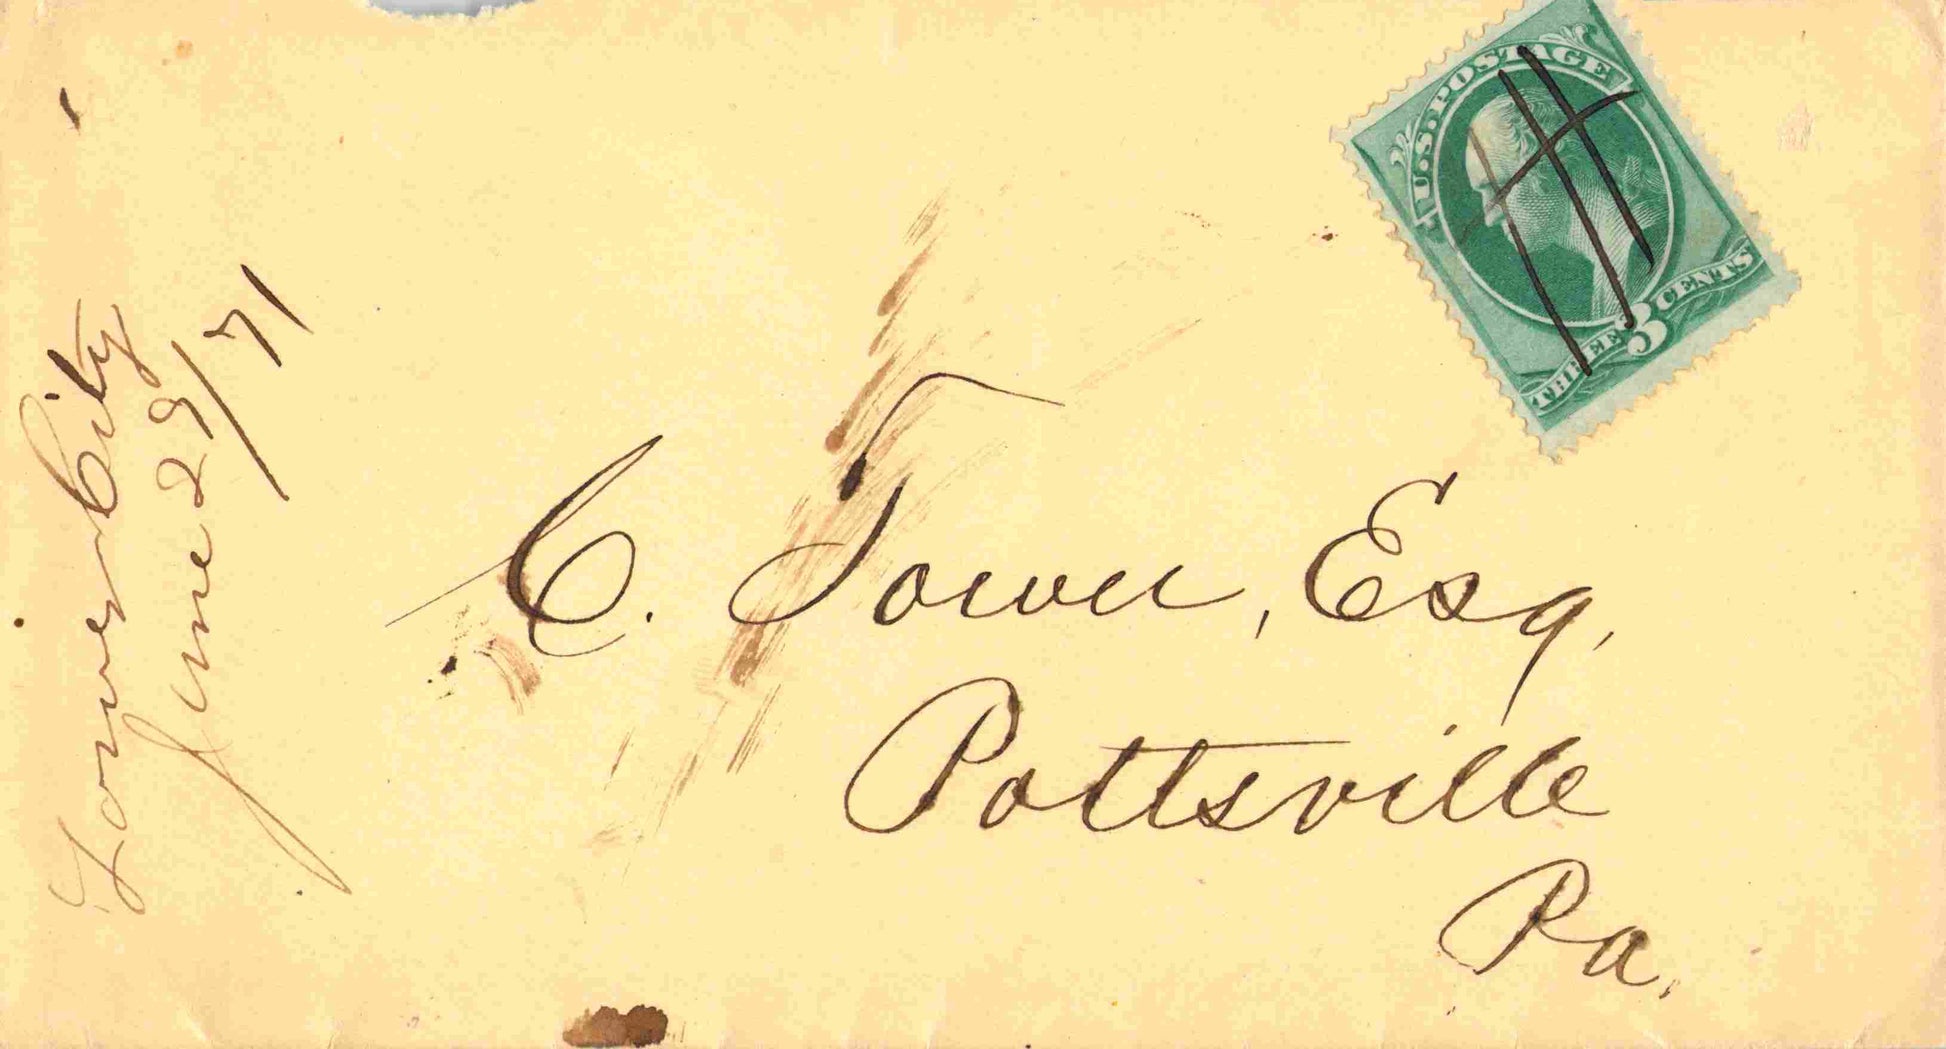 Tower City
June 29/71
U.S. POSTAGE
THREE 3 CENTS
C. Tower, Esq,
Pottsville
Pa.